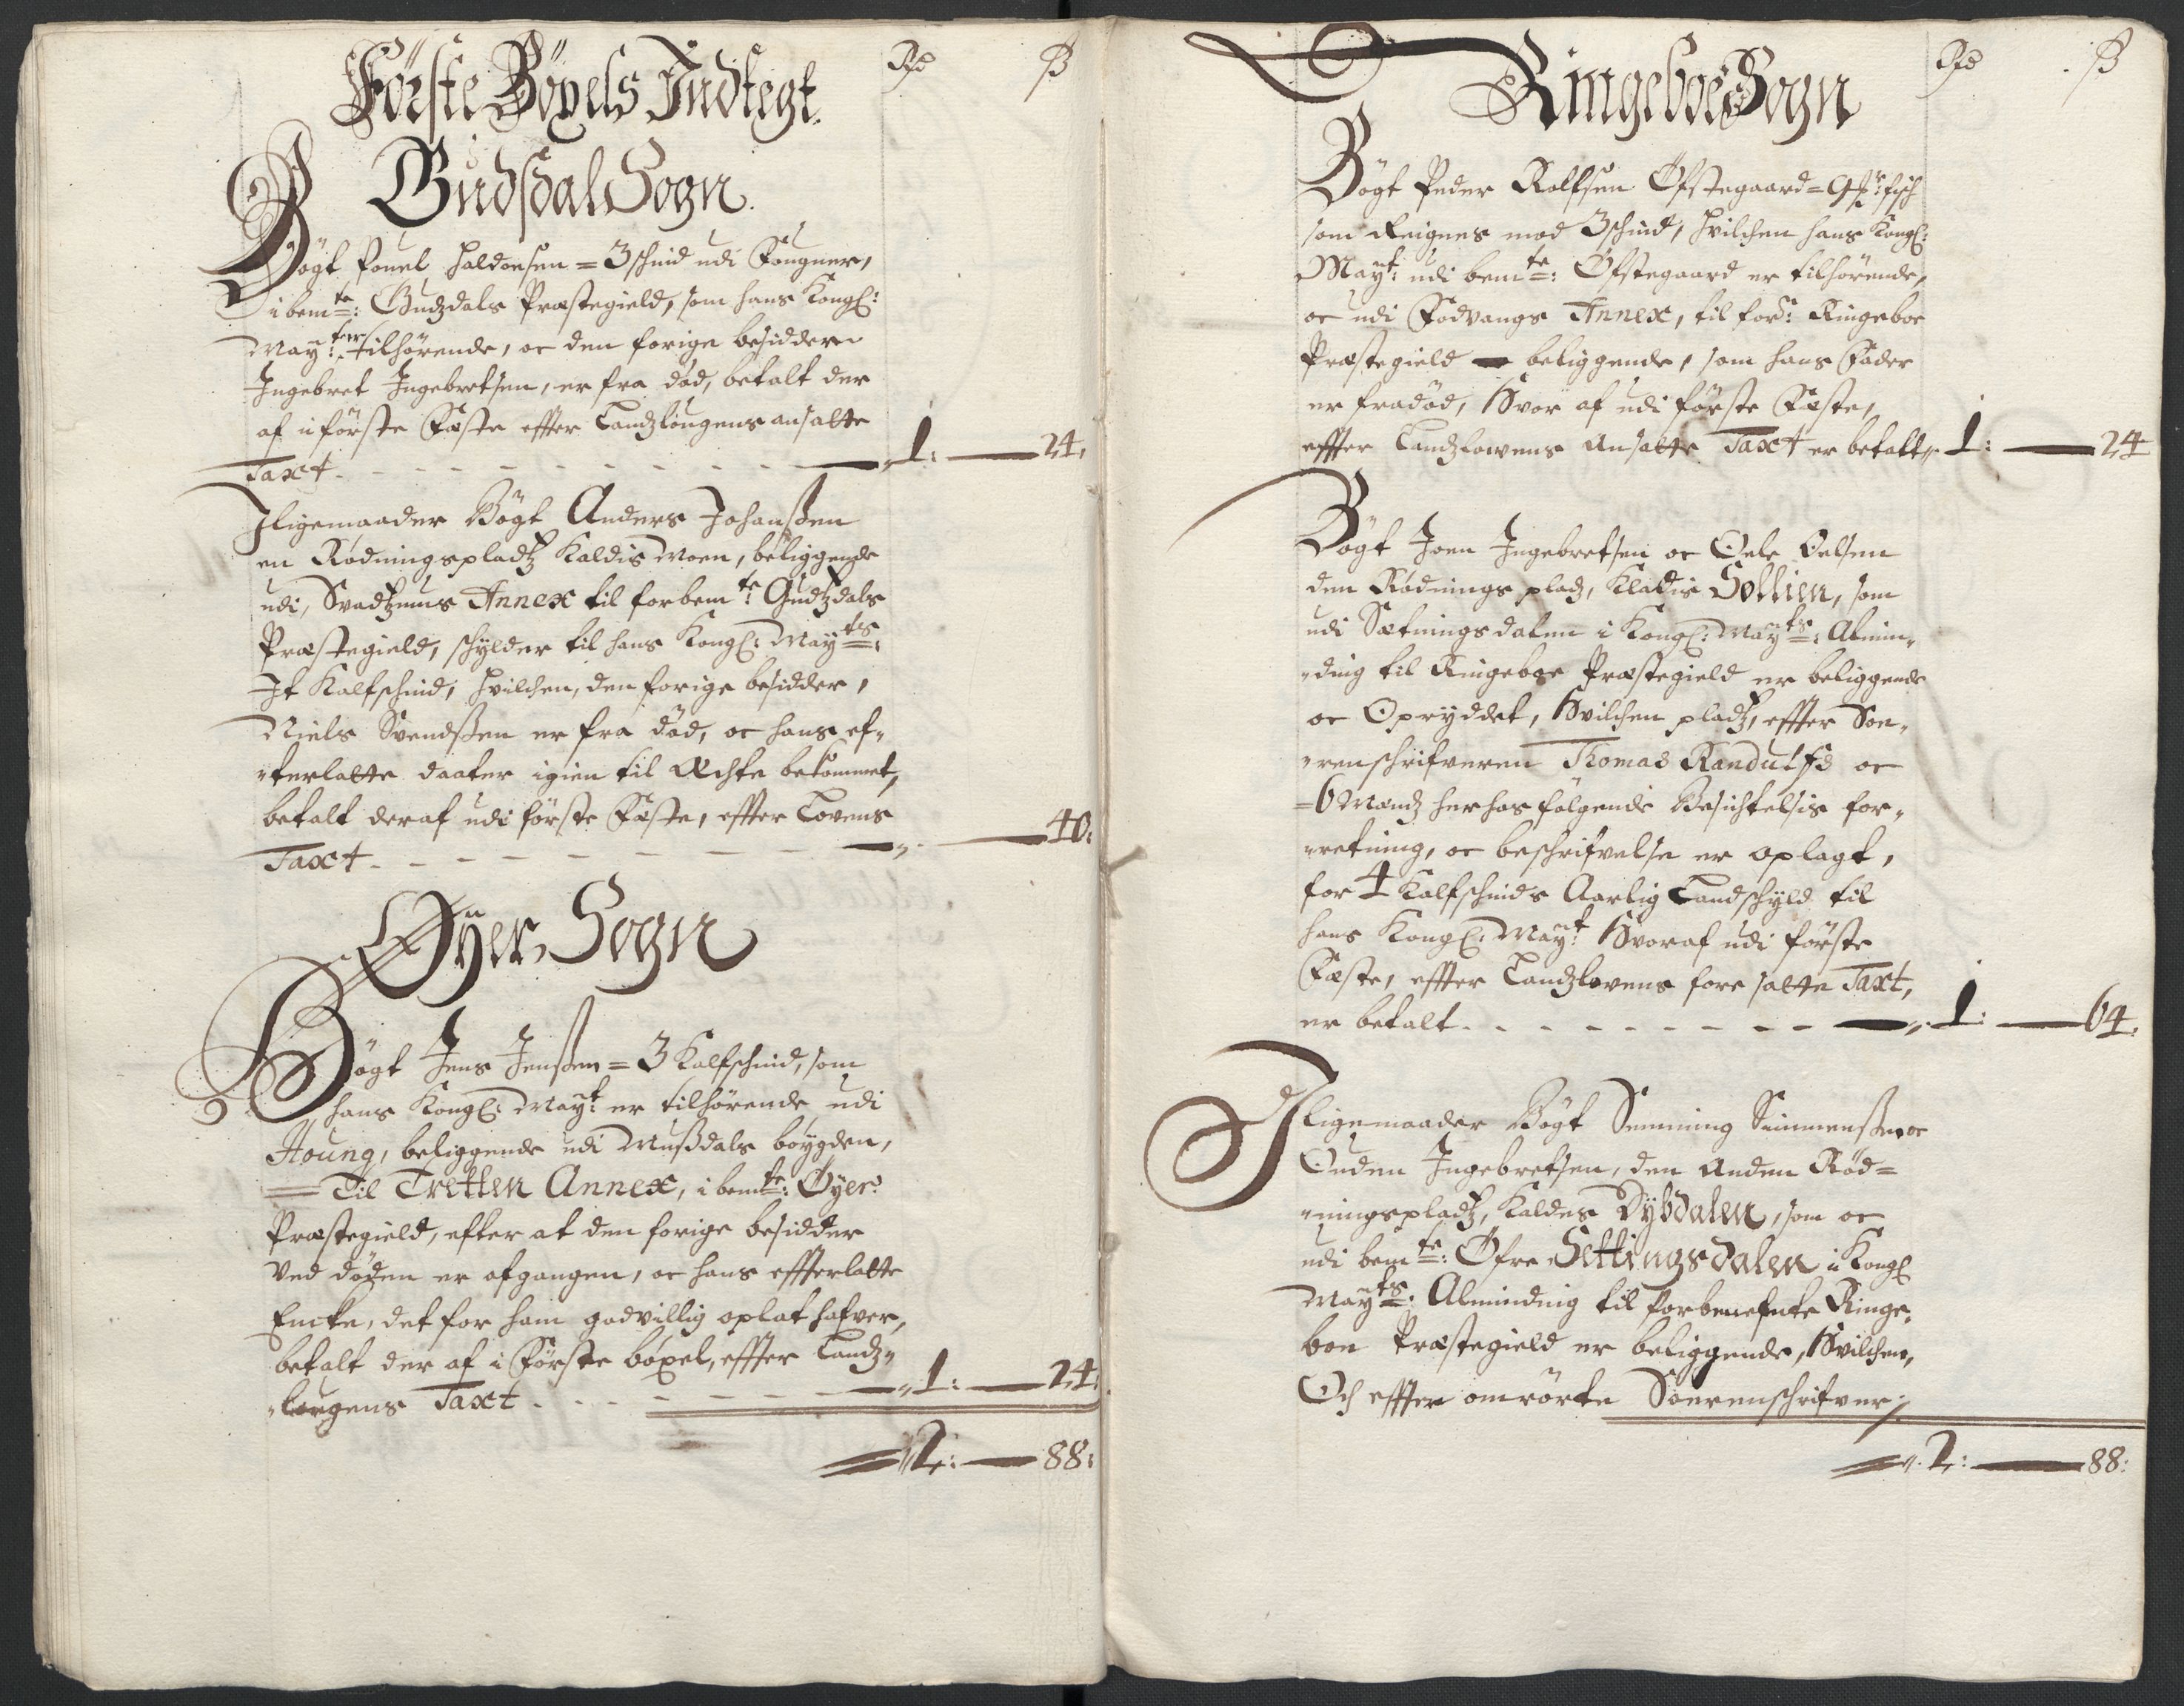 Rdr ß
Förste Böxels Indtegt.
Gudsdal Sogn.
Bögt Pouel Haldorsen = 3 schind udi Fougner,
i bemte: Gudzdals Præstegield, som hans Kongl:
Mayt: er tilhörende, oc den forige besidder
Ingebret Ingebretsen, er fra död, betalt der
af i förste Fæste effter Landzlougens ansatte
Taxt - - - - 1: — 24.
Iligemaader Bögt Anders Johanßen
en Rödningspladtz Kaldis Moen, beliggende
udi, Svadtzmus Annex til forbemte: Gudtzdals
Præstegield, schylder til hans Kongl: Mayts:
It Kalfschind, hvilchen, den forige besidder,
Niels Svendßen er fra död, oc hans ef-
terlatte daater igien til Æchte bekommet,
betalt deraf udi förste Fæste, effter Lovens
Taxt - - - - — 40:
Öÿer Sogn
Bögt Jens Jenßen = 3 Kalfschind, som
hans Kongl: Mayt: er tilhörende udi
Houng, beliggende udi Mußdals böygden,
Til Tretten Annex, i bemte: Öyer
Præstegield, efter at den forige besidder
ved döden er afgangen, oc hans effterlatte
Encke, det for ham godvillig oplat hafver,
betalt der af i Förste böxel, effter Landz-
lougens Taxt - - - - 1: — 24:
2: — 88:
Rdr ß
Ringeboe Sogn
Bögt Peder Rolfsen Öfstegaard = 9 fisch
som Reignes mod 3 schind, hvilchen hans Kongl:
Mayt: udi bemte: Öfstegaard er tilhörende,
oc udi Fodvangs Annex, til forn: Ringeboe
Præstegield beliggende, som hans Fader
er fradöd, Hvor af udi förste Fæste,
effter Landzlowens Ansatte Taxt er betalt 1: — 24
Bögt Joen Ingebretsen oc Oele Oelsen
den Rödnings plads, Kladis Sollien, som
udi Sætningsdalen i Kongl: Mayts: Almin-
ding til Ringeboe Præstegield er beliggende
oc Opryddet, Hvilchen pladtz, effter Soe-
renschrifveren Thomas Randulfs oc
= 6 Mænds herhos fölgende Besichtelsis for-
retning, oc beschrifvelse er oplagt,
for 4 Kalfschinds Aarlig Landschyld til
hans Kongl: Mayt: Hvoraf udi förste
Fæste, effter Landzlovens fore satte Taxt,
er betalt - - - - 1: — 64.
Iligemaader Bögt Simming Simmenßen oc
Ouden Ingebretsen, den anden Röd=
ningspladtz, Kaldes Dybdalen, som oc
udi bemte: Öfre Settingsdalen i Kongl
Mayts: Alminding til forbenefnte Ringe-
boe Præstegield er beliggende, Hvilchen,
Och effter omrörte Soerenschrifver:
2: — 88: